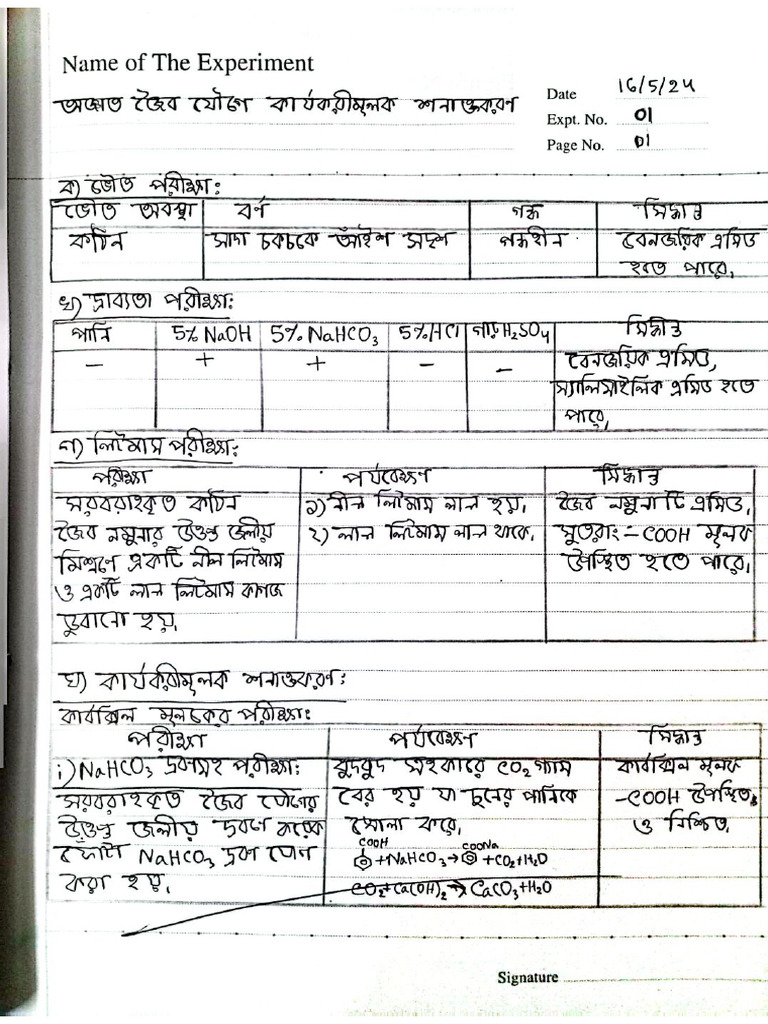 Name of The Experiment
অজ্ঞাত জৈব যৌগে কার্যকরীমূলক শনাক্তকরণ
Date 16/5/24
Expt. No. 01
Page No. 01
ক) ভৌত পরীক্ষা:
ভৌত অবস্থা বর্ণ গন্ধ সিদ্ধান্ত
কঠিন সাদা চকচকে আঁইশ সদৃশ গন্ধহীন বেনজয়িক এসিড
হতে পারে।
খ) দ্রাব্যতা পরীক্ষা:
পানি 5% NaOH 5% NaHCO3 5% HCl গাঢ় H2SO4 সিদ্ধান্ত
- + + - - বেনজয়িক এসিড,
স্যালিসাইলিক এসিড হতে
পারে।
গ) লিটমাস পরীক্ষা:
পরীক্ষা পর্যবেক্ষণ সিদ্ধান্ত
সরবরাহকৃত কঠিন ১) নীল লিটমাস লাল হয়। জৈব নমুনাটি এসিড।
জৈব নমুনার উত্তপ্ত জলীয় ২) লাল লিটমাস লাল থাকে। সুতরাং -COOH মূলক
মিশ্রণে একটি নীল লিটমাস উপস্থিত হতে পারে।
ও একটি লাল লিটমাস কাগজ
ডুবানো হয়।
ঘ) কার্যকরীমূলক শনাক্তকরণ:
কার্বক্সিল মূলকের পরীক্ষা:
পরীক্ষা পর্যবেক্ষণ সিদ্ধান্ত
i) NaHCO3 দ্রবণসহ পরীক্ষা: বুদবুদ সহকারে CO2 গ্যাস কার্বক্সিল মূলক
সরবরাহকৃত জৈব যৌগের বের হয় যা চুনের পানিকে -COOH উপস্থিত
উত্তপ্ত জলীয় দ্রবণে কয়েক ঘোলা করে। ও নিশ্চিত।
ফোঁটা NaHCO3 দ্রবণ যোগ COOH +NaHCO3→ COONa +CO2+H2O
করা হয়। CO2+Ca(OH)2→CaCO3+H2O
Signature